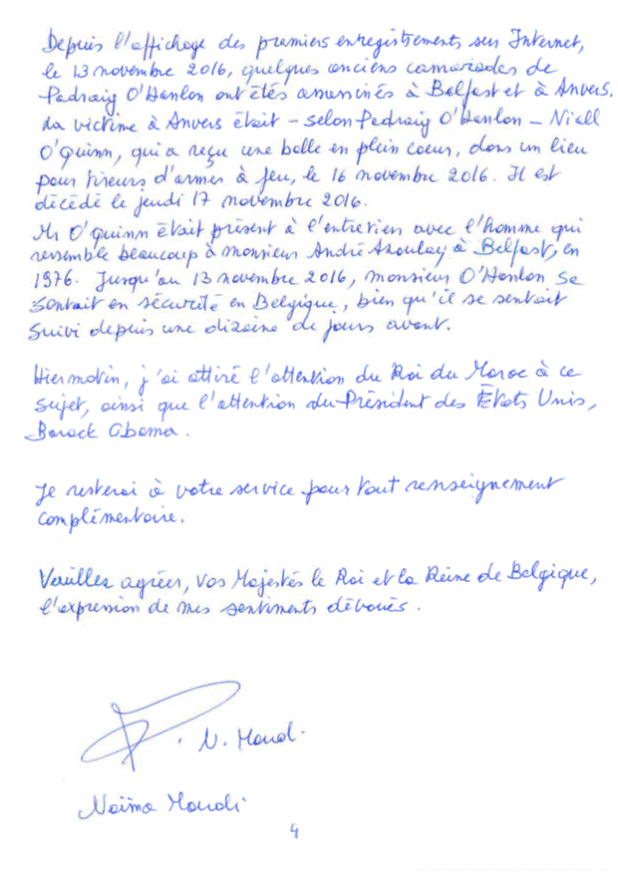 Depuis l'affichage des premiers enregistrements sur Internet,
le 13 novembre 2016, quelques anciens camarades de
Padraig O'Hanlon ont étés assassinés à Belfast et à Anvers.
La victime à Anvers était - selon Padraig O'Hanlon - Niall
O'Quinn, qui a reçu une balle en plein coeur, dans un lieu
pour tireurs d'armes à feu, le 16 novembre 2016. Il est
décédé le jeudi 17 novembre 2016.
Mr O'Quinn était présent à l'entretien avec l'homme qui
ressemble beaucoup à monsieur André Azoulay à Belfast, en
1976. Jusqu'au 13 novembre 2016, monsieur O'Hanlon se
sentait en sécurité en Belgique, bien qu'il se sentait
suivi depuis une dizaine de jours avant.
Hier matin, j'ai attiré l'attention du Roi du Maroc à ce
sujet, ainsi que l'attention du Président des États Unis,
Barack Obama.
Je resterai à votre service pour tout renseignement
complémentaire.
Veuillez agréer, vos Majestés le Roi et la Reine de Belgique,
l'expression de mes sentiments dévoués.
N.
Naïma
4